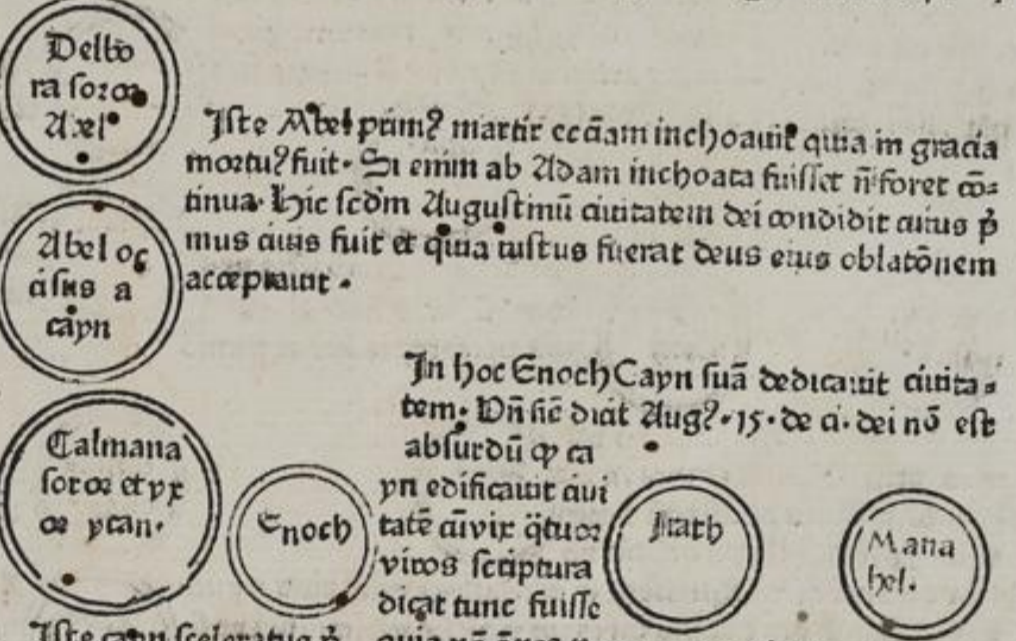 Delbo
ra soror
Abel
Iste Abel prim9 martir eccīam inchoauit quia in gracia
mortu9 fuit. Si enim ab Adam inchoata fuisset n̄ foret cō=
tinua. Hic scdm Augustinū ciuitatem dei condidit cuius p̄
mus ciuis fuit et quia iustus fuerat deus eius oblatōnem
acceptauit.
Abel oc
cisus a
cayn
In hoc Enoch Cayn suā dedicauit ciuita=
tem. Vn̄ sic dicit Aug9. 15. de ci. dei nō est
absurdū ꝙ ca
yn edificauit ciui
tatē cū vix q̈tuor
viros scriptura
dicat tunc fuisse
Calmana
soror et vx
or
Enoch
Irath
Mana
hel.
Iste cayn sceleratus